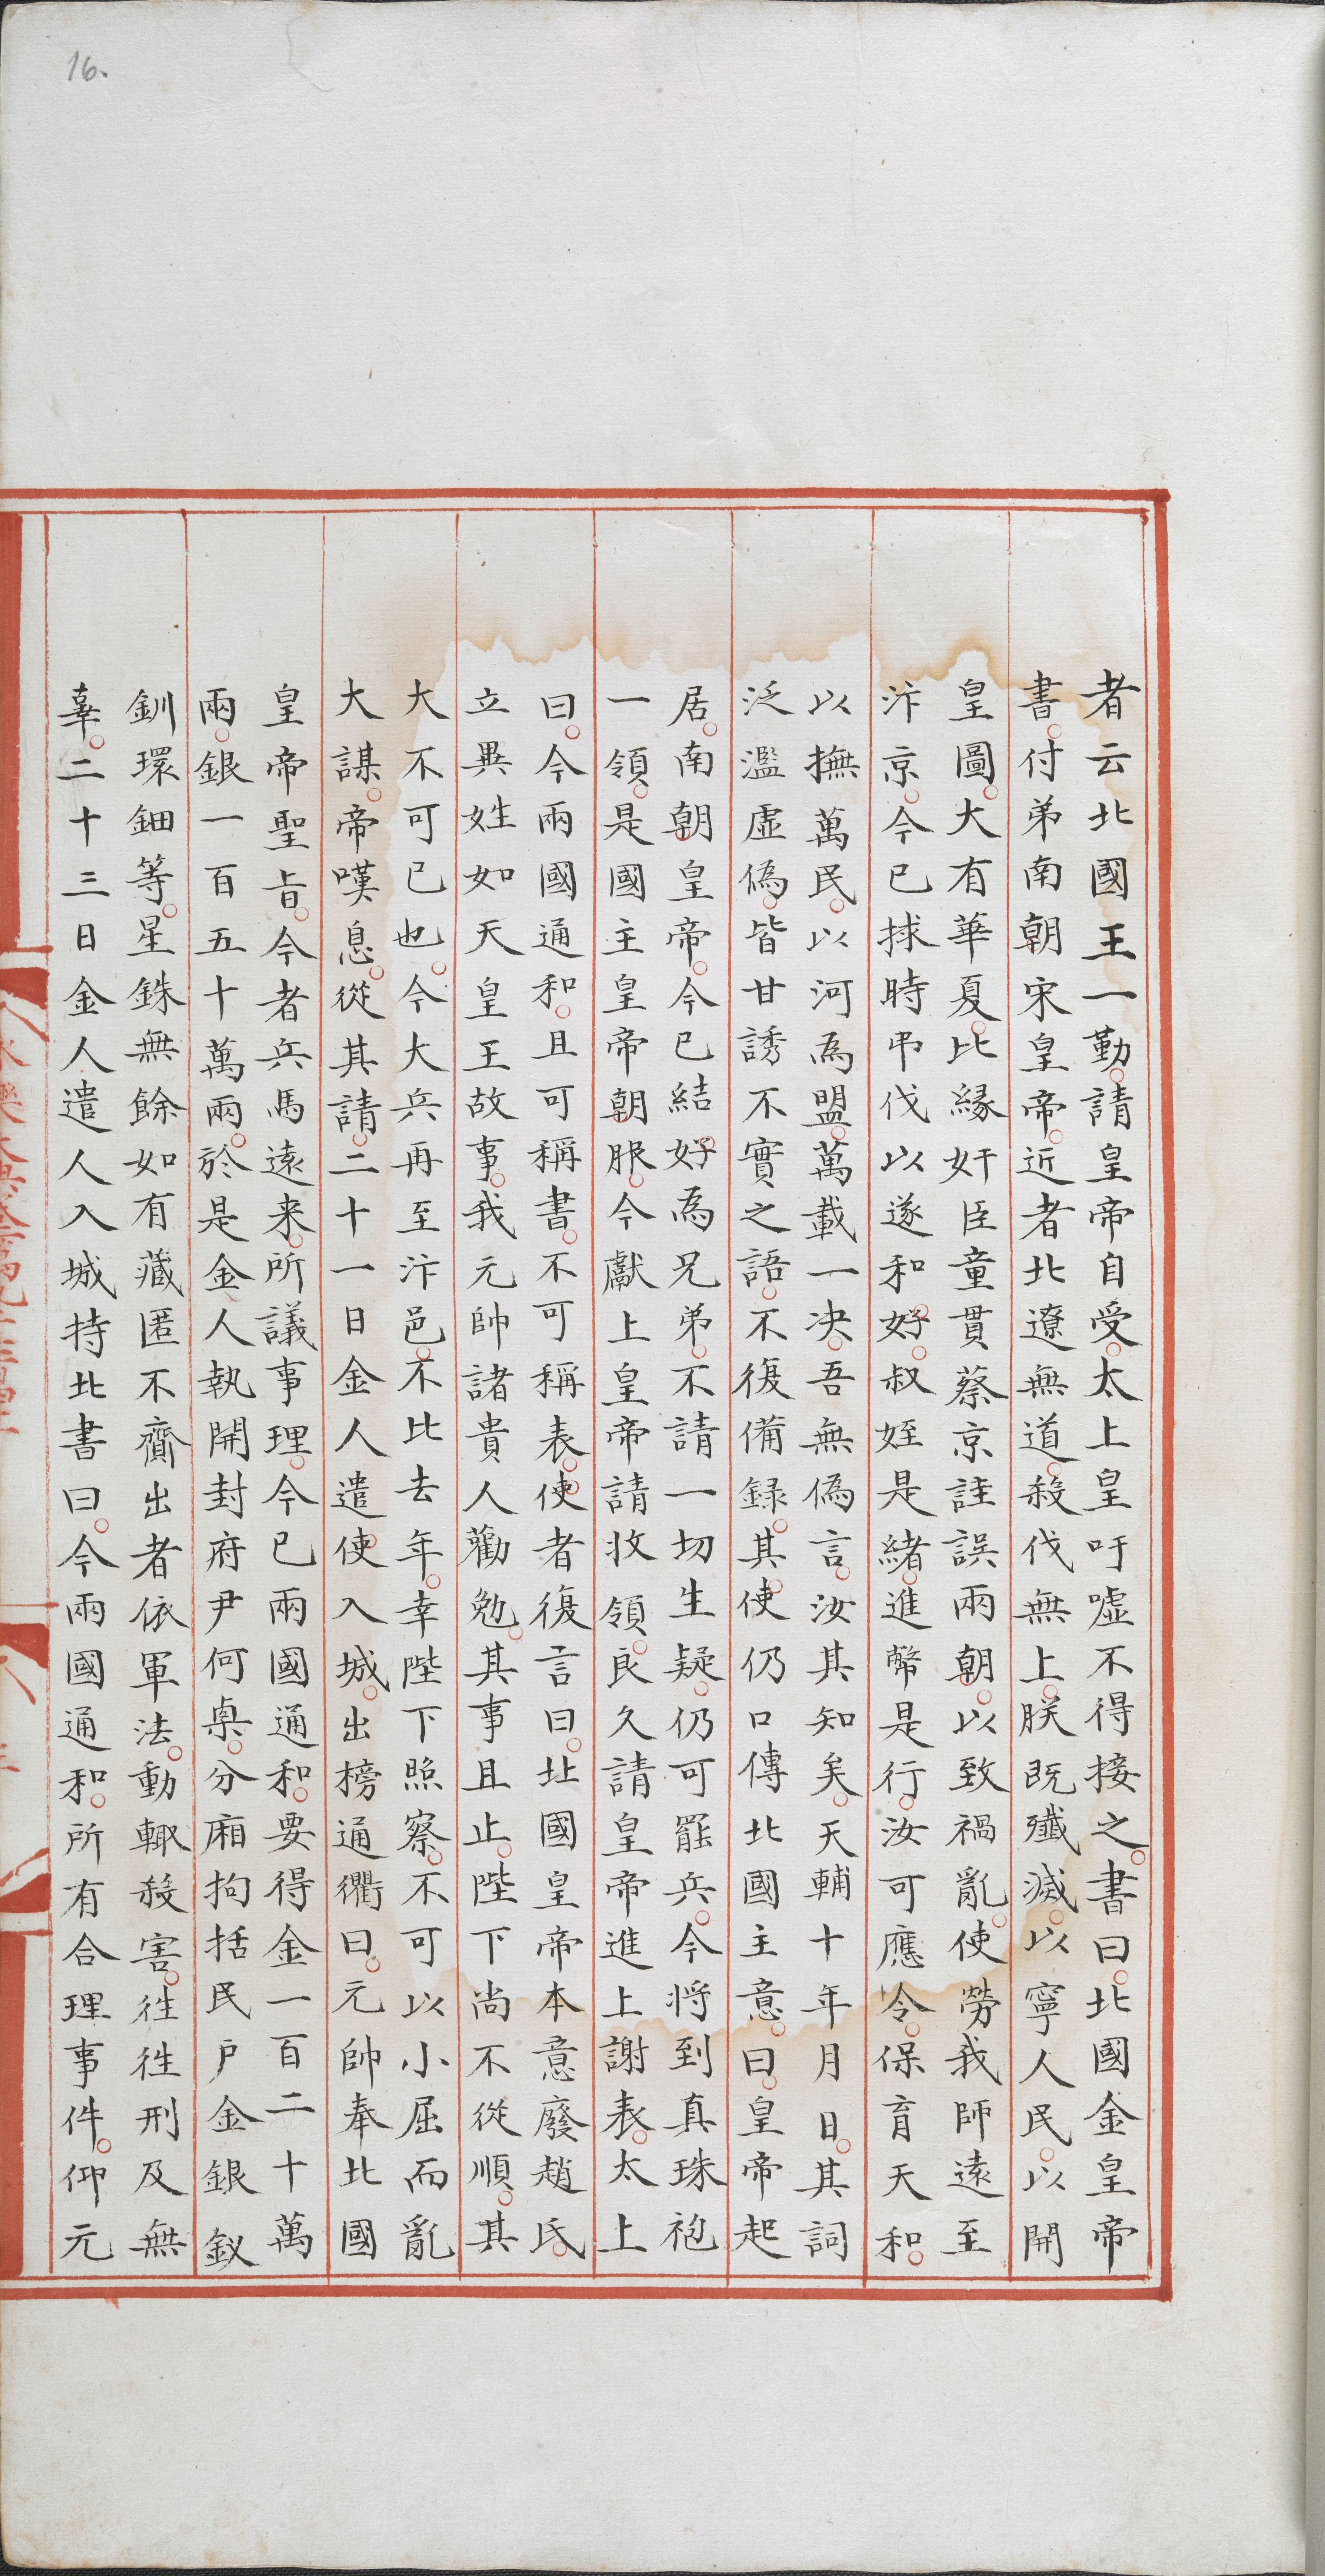 16.
者云北國王一勤請皇帝自受太上皇吁嘘不得接之書曰北國金皇帝
書付弟南朝宋皇帝近者北遼無道殺伐無上朕既殲滅以寧人民以開
皇圖大有華夏比緣奸臣童貫蔡京詿誤兩朝以致禍亂使勞我師遠至
汴京今已捄時弔伐以遂和好叔姪是緒進幣是行汝可應令保育天和
以撫萬民以河為盟萬載一决吾無偽言汝其知矣天輔十年月日其詞
泛濫虛偽皆甘誘不實之語不復備録其使仍口傳北國主意曰皇帝起
居南朝皇帝今已結好為兄弟不請一切生疑仍可罷兵今將到真珠袍
一領是國主皇帝朝服今獻上皇帝請收領良久請皇帝進上謝表太上
曰今兩國通和且可稱書不可稱表使者復言曰北國皇帝本意廢趙氏
立異姓如天皇王故事我元帥諸貴人勸勉其事且止陛下尚不從順其
大不可已也今大兵再至汴邑不比去年幸陛下照察不可以小屈而亂
大謀帝嘆息從其請二十一日金人遣使入城出榜通衢曰元帥奉北國
皇帝聖旨今者兵馬遠来所議事理今已兩國通和要得金一百二十萬
兩銀一百五十萬兩於是金人執開封府尹何㮚分廂拘括民户金銀釵
釧環鈿等星銖無餘如有藏匿不齎出者依軍法動輙殺害徃徃刑及無
辜二十三日金人遣人入城持北書曰今兩國通和所有合理事件仰元